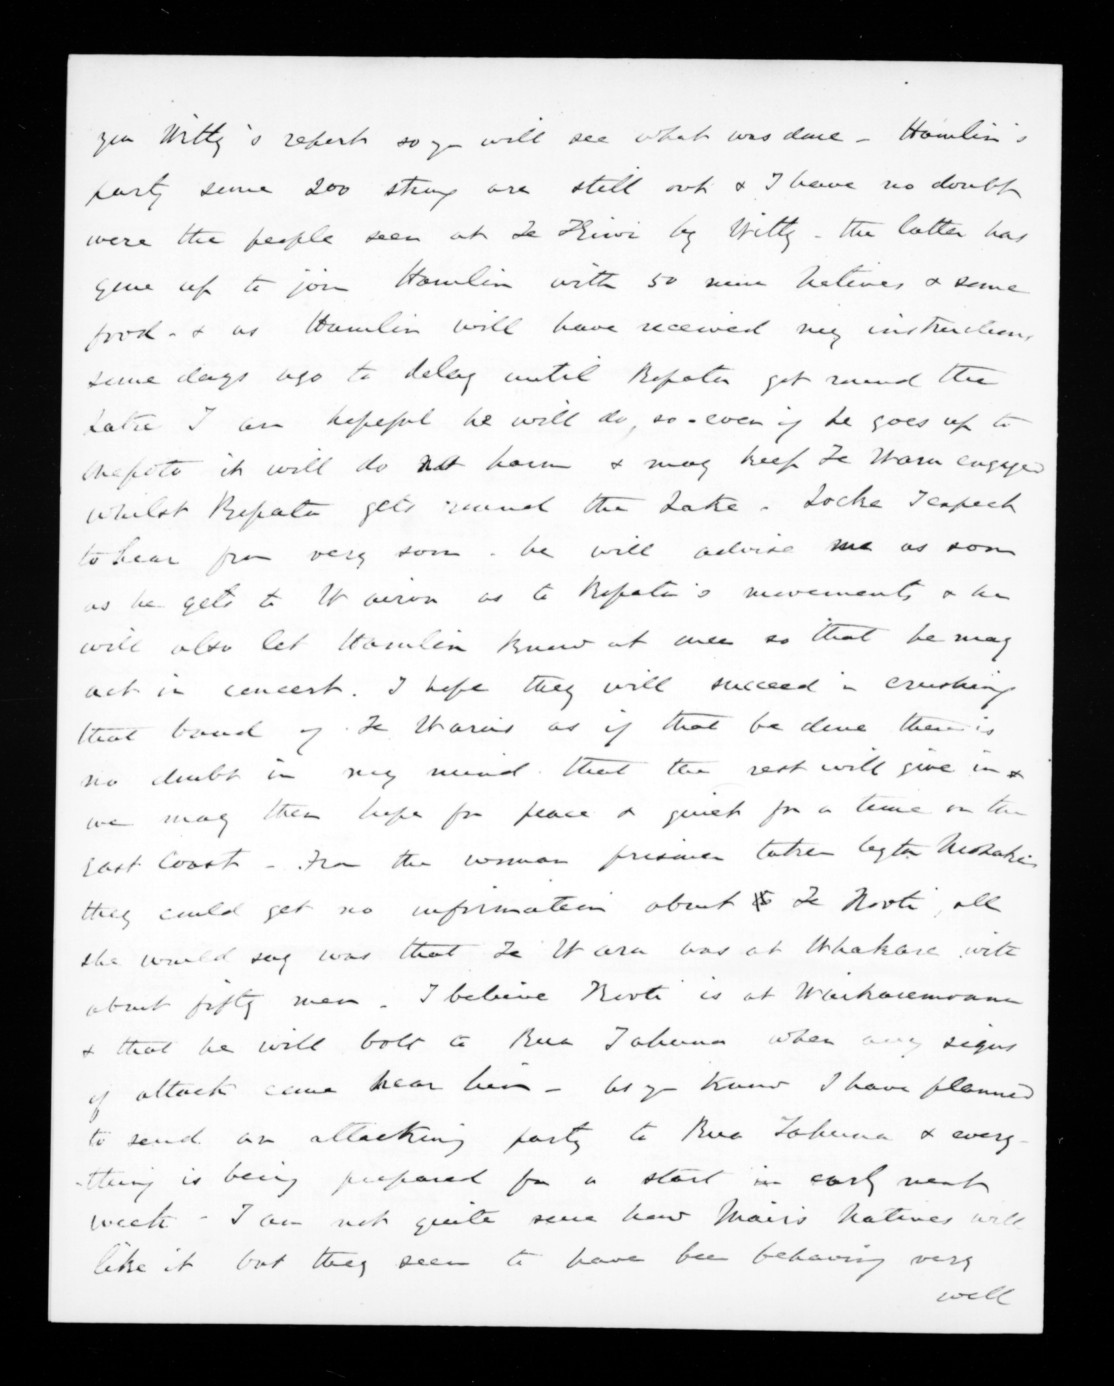 you Witty's report so you will see what was done - Hamlin's
party some 200 strong are still out & I have no doubt
were the people seen at Te Kiwi by Witty - the latter has
gone up to join Hamlin with 50 more Natives & some
food - & as Hamlin will have received my instructions
some days ago to delay until Ropata got round the
Lake I am hopeful he will do so - even if he goes up to
Onepoto it will do no harm & may keep Te Waru engaged
whilst Ropata gets round the Lake. Locke I expect
to hear from very soon - he will advise me as soon
as he gets to Wairoa as to Ropata's movements & he
will also let Hamlin know at once so that he may
act in concert. I hope they will succeed in crushing
that band of Te Waru's as if that be done there is
no doubt in my mind that the rest will give in &
we may then hope for peace & quiet for a time on the
East Coast - From the woman prisoner taken by the
they could get no information about Te Kooti, all
she would say was that Te Waru was at Whakare with
about fifty men. I believe Kooti is at Waikaremoana
& that he will bolt to Rua Tahuna when any signs
of attack come near him - As you know I have planned
to send an attacking party to Rua Tahuna & every-
-thing is being prepared for a start in early next
week - I am not quite sure how Mair's Natives will
like it but they seem to have been behaving very
well